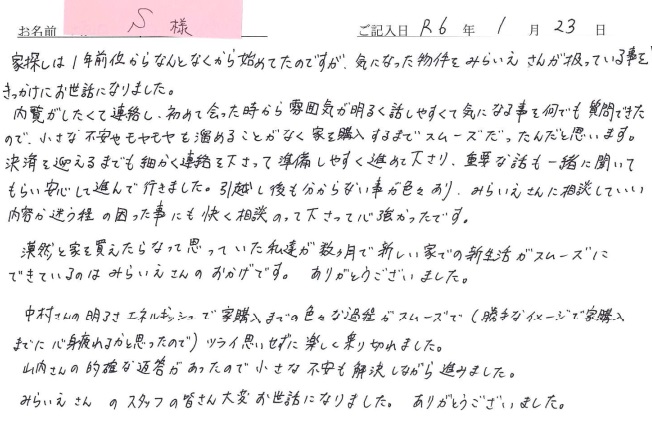 お名前 S 様 ご記入日 R6 年 1 月 23 日
家探しは1年前位からなんとなくから始めてたのですが、気になった物件をみらいえさんが扱っている事を
きっかけにお世話になりました。
内覧がしたくて連絡し、初めて会った時から雰囲気が明るく話しやすくて気になる事を何でも質問できた
ので、小さな不安やモヤモヤを溜めることがなく家を購入するまでスムーズだったんだと思います。
決済を迎えるまでも細かく連絡を下さって準備しやすく進めて下さり、重要な話も一緒に聞いて
もらい安心して進んで行きました。引越し後も分からない事が色々あり、みらいえさんに相談していい
内容か迷う程の困った事にも快く相談のって下さって心強かったです。
漠然と家を買えたらなって思っていた私達が数ヶ月で新しい家での新生活がスムーズに
できているのはみらいえさんのおかげです。ありがとうございました。
中村さんの明るさエネルギッシュで家購入までの色々な過程がスムーズで(勝手なイメージで家購入
までに心身疲れるかと思ったので)ツライ思いせずに楽しく乗り切れました。
山内さんの的確な返答があったので小さな不安も解決しながら進みました。
みらいえさんのスタッフの皆さん大変お世話になりました。ありがとうございました。